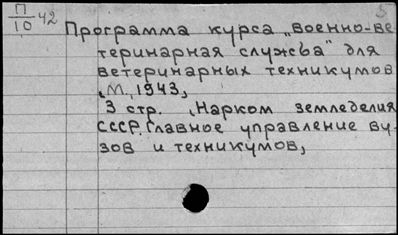 П/10 42
5
Программа курса „Военно-ве
теринарная служба" для
ветеринарных техникумов
М. 1943,
3 стр. (Нарком земледелия
СССР. Главное управление ву-
зов и техникумов,